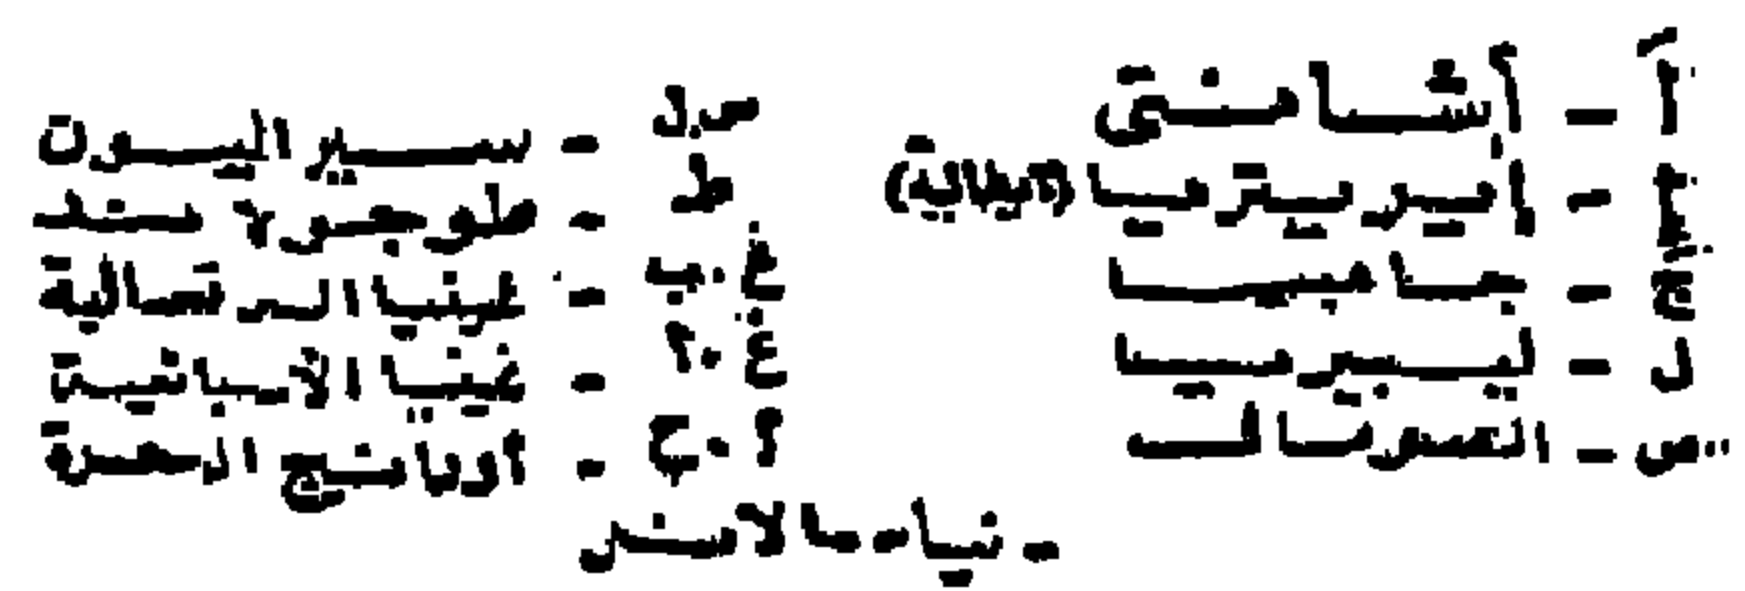 أ - أشانتى
إ - إيريتريا (إيطالية)
ج - جامبيا
ل - ليبيريا
س - الصومال
س.ل - سيراليون
ط - طوجولاند
غ.ب - غينيا البرتغالية
غ.أ - غينيا الأسبانية
أ.ح - أورانج الحرة